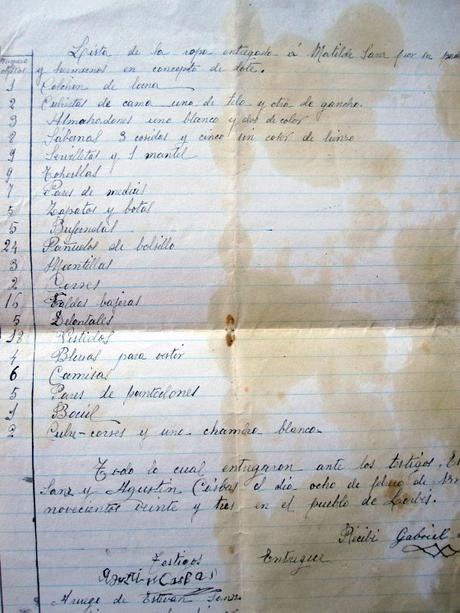 Lista de la ropa entregada á Matilde Sanz por su
y hermanos en concepto de dote.
1 Colchon de lana
2 Cubiertas de cama una de tela y otra de gancho
3 Almahadones uno blanco y dos de color
8 Sábanas 3 cosidas y cinco sin coser de lienzo
9 Servilletas y 1 mantel
9 Tohallas
7 Pares de medias
5 Zapatos y botas
5 Bufandas
24 Pañuelos de bolsillo
3 Mantillas
2 Corses
16 Faldas bajeras
5 Delantales
28 Vestidos
4 Blusas para vestir
6 Camisas
5 Pares de pantalones
1 Baúl
2 Cubre-corses y una chambra blanca
Todo lo cual entregaron ante los testigos
Sanz y Agustin el día ocho de de
novecientos veinte y tres en el pueblo de
Recibí Gabriel
Testigos Entregué
Aruego de Estevan Sanz